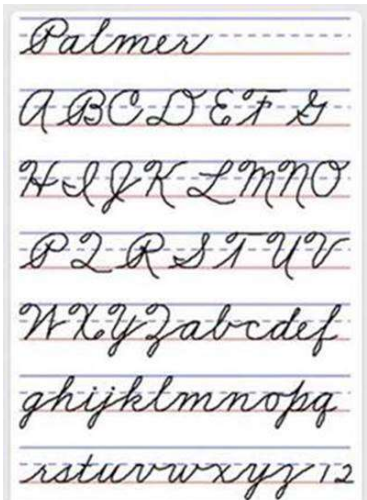 Palmer
A B C D E F G
H I J K L M N O
P Q R S T U V
W X Y Z a b c d e f
g h i j k l m n o p q
r s t u v w x y z 1 2